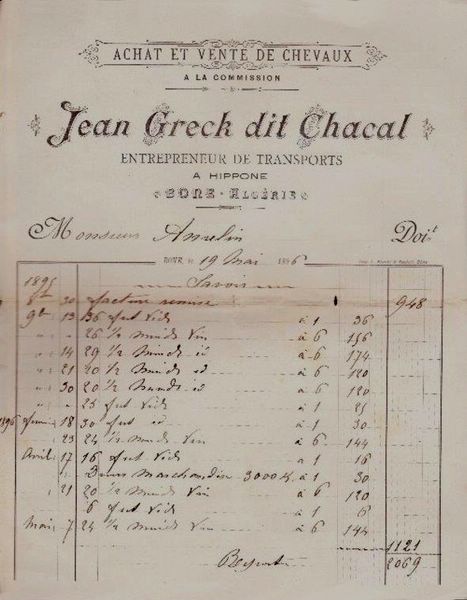 ACHAT ET VENTE DE CHEVAUX
A LA COMMISSION
Jean Greck dit Chacal
ENTREPRENEUR DE TRANSPORTS
A HIPPONE
BONE - ALGÉRIE
Monsieur Doit
BONE, le 19 Mai 1896
1895 Savoir
8bre 30 facture remise 948
9bre 13 36 fut vide à 1 36
" " 26 1/2 muids vin à 6 156
" 14 29 1/2 muids id à 6 174
" 21 20 1/2 muids id à 6 120
" 30 20 1/2 muids id à 6 120
" " 25 fut vide à 1 25
1896 18 30 fut id à 1 30
23 24 1/2 muids vin à 6 144
Avril 17 16 fut vide à 1 16
Marchandise 3000 K. à 1 30
" 21 20 1/2 muids vin à 6 120
6 fut vide à 1 6
Mai 7 24 1/2 muids vin à 6 144
1121
Report 2069